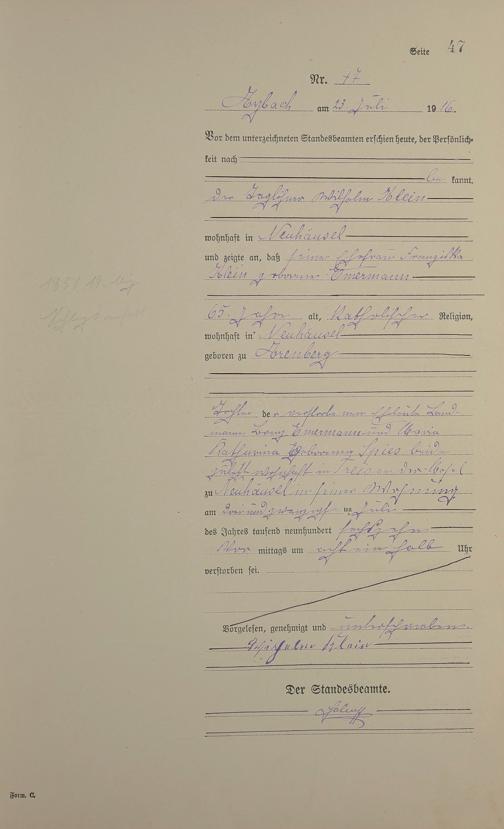 Seite 47
Nr. 17
am 23 Juli 1916.
Vor dem unterzeichneten Standesbeamten erschien heute, der Persönlich-
keit nach
kannt,
der Taglöhner Wilhelm Klein
wohnhaft in Neuhäusel
und zeigte an, daß seine Ehefrau Franziska
Klein geborene Emermann
65 Jahre alt, Katholischer Religion,
wohnhaft in Neuhäusel
geboren zu Arenberg
Tochter der Eheleute Land-
mann Emermann und Maria
Katharina geborene Spies beide
zuletzt wohnhaft in
zu Neuhäusel in seiner Wohnung
am drei und zwanzigsten Juli
des Jahres tausend neunhundert sechzehn
Vor mittags um acht ein halb Uhr
verstorben sei.
Vorgelesen, genehmigt und unterschrieben
Wilhelm Klein
Der Standesbeamte.
Form. C.